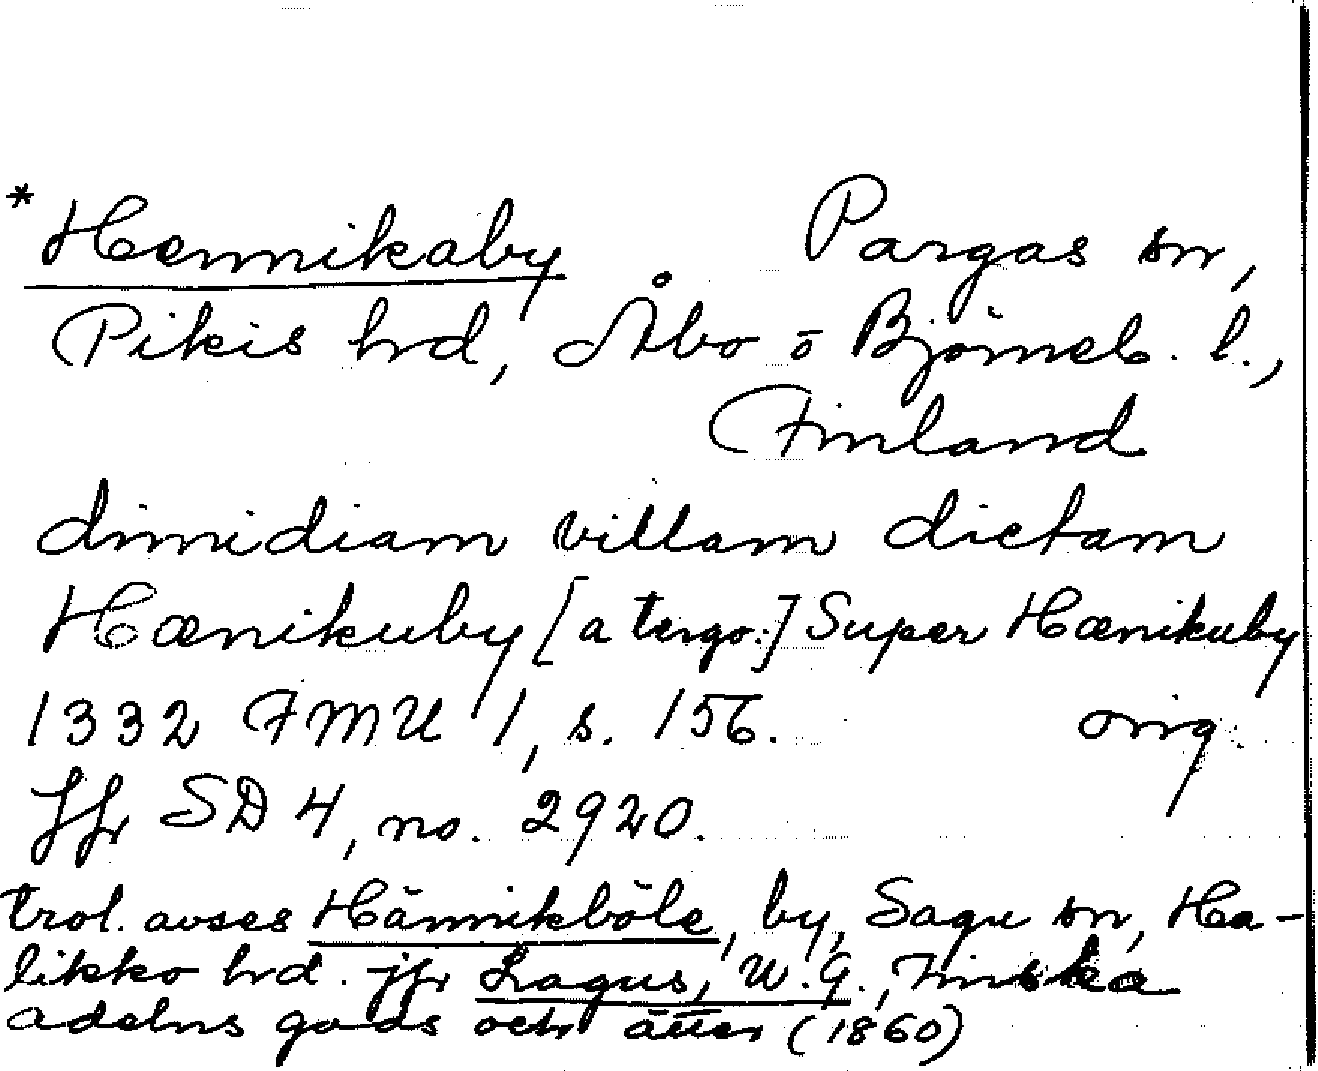 * Hennikaby Pargas sn,
Pikis hrd, Åbo o Björneb. l.,
Finland
dimidiam villam dictam
Hænikuby [a tergo:] Super Hænikuby
1332 FMU 1, s. 156. orig.
Jfr SD 4, no. 2920.
trol. avses Hännikböle, by, Sagu sn, Ha-
likko hrd. jfr Lagus, W.G., Finska
adelns gods och ätter (1860)